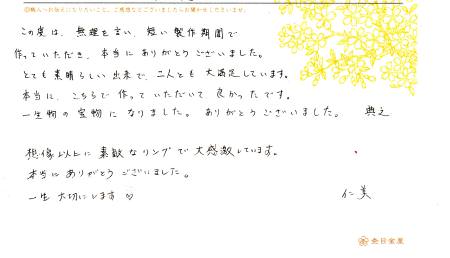 ◎職人へお伝えになりたいこと、ご感想などございましたらお聞かせくださいませ。
この度は、無理を言い、短い製作期間で
作っていただき、本当に ありがとうございました。
とても素晴らしい出来で、二人とも 大満足しています。
本当に、こちらで 作って いただいて 良かったです。
一生物の宝物に なりました。 ありがとうございました。 典之
想像以上に 素敵なリングで大感激しています。
本当に ありがとう ございました。
一生 大切にします♡ 仁美
杢目金屋